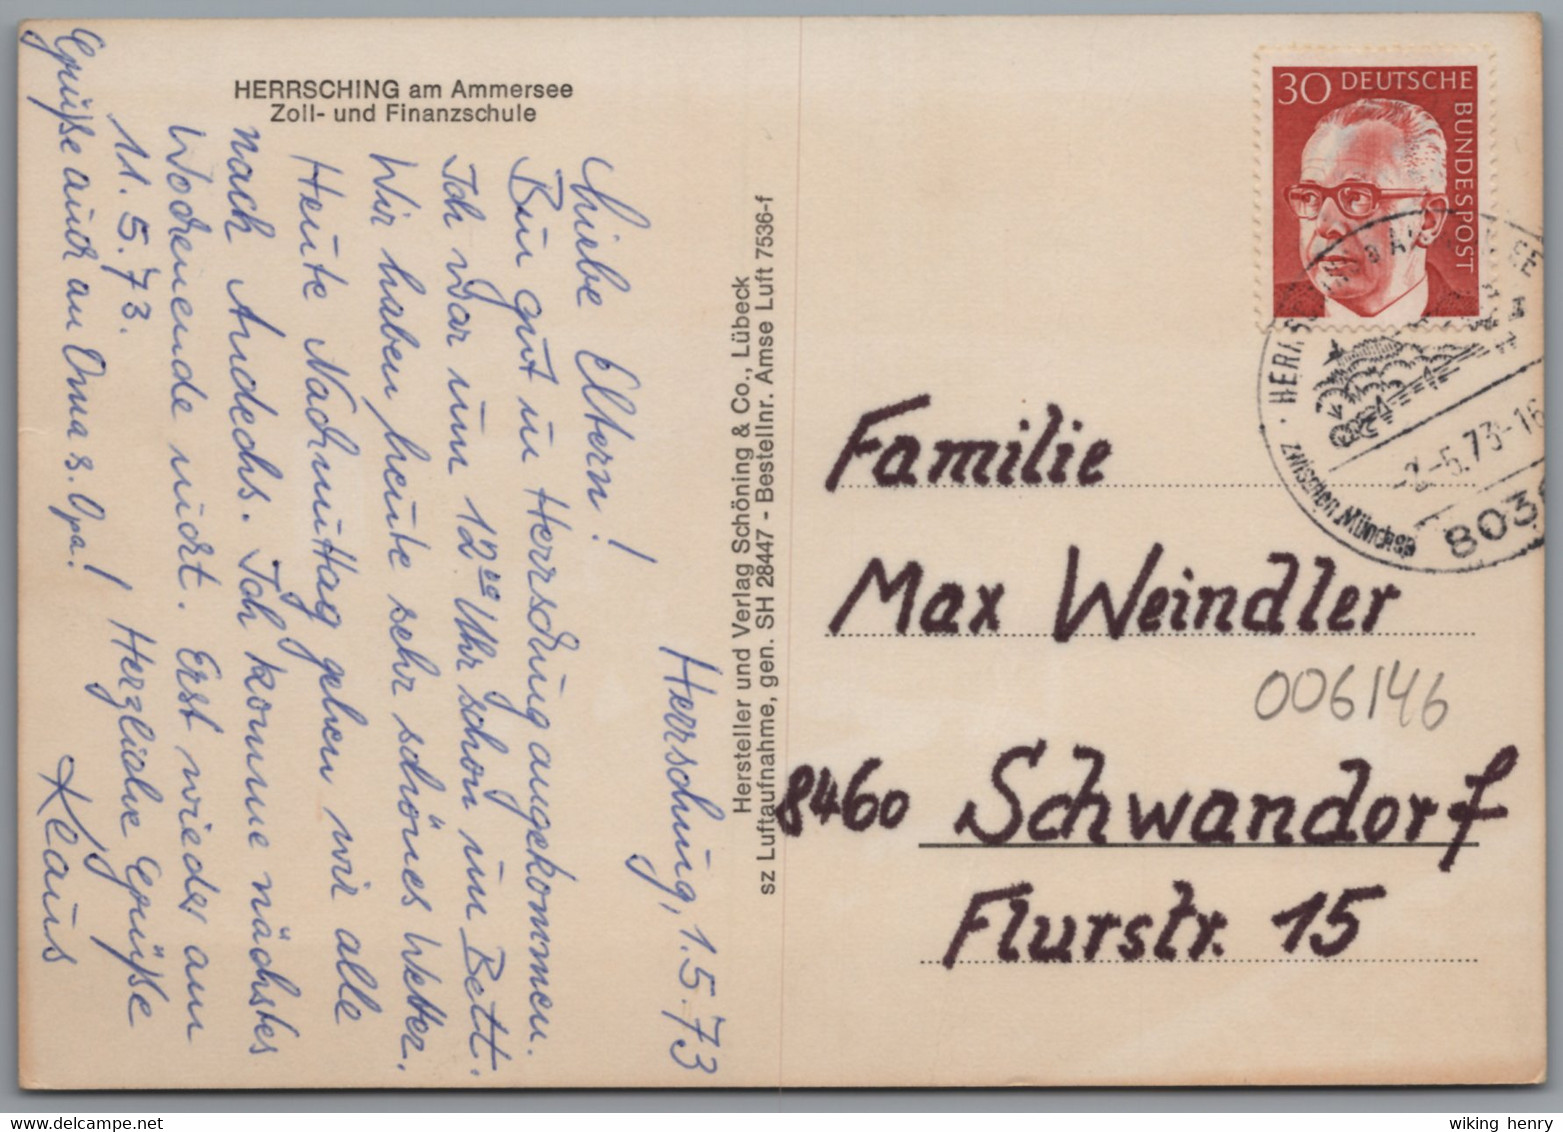 HERRSCHING am Ammersee
Zoll- und Finanzschule
Herrsching, 1.5.73
Liebe Eltern!
Bin gut in Herrsching angekommen.
Ich war um 12 00 Uhr schon im Bett.
Wir haben heute sehr schönes Wetter.
Heute Nachmittag gehen wir alle
nach Andechs. Ich komme nächstes
Wochenende nicht. Erst wieder am
11.5.73. Herzliche Grüße
Klaus
Grüße auch an Oma & Opa!
Hersteller und Verlag Schöning & Co., Lübeck
sz Luftaufnahme, gen. SH 28447 - Bestellnr. Amse Luft 7536-f
30 DEUTSCHE
BUNDESPOST
zwischen München
-5.73-16
803
Familie
Max Weindler
006146
8460 Schwandorf
Flurstr. 15
wiking henry